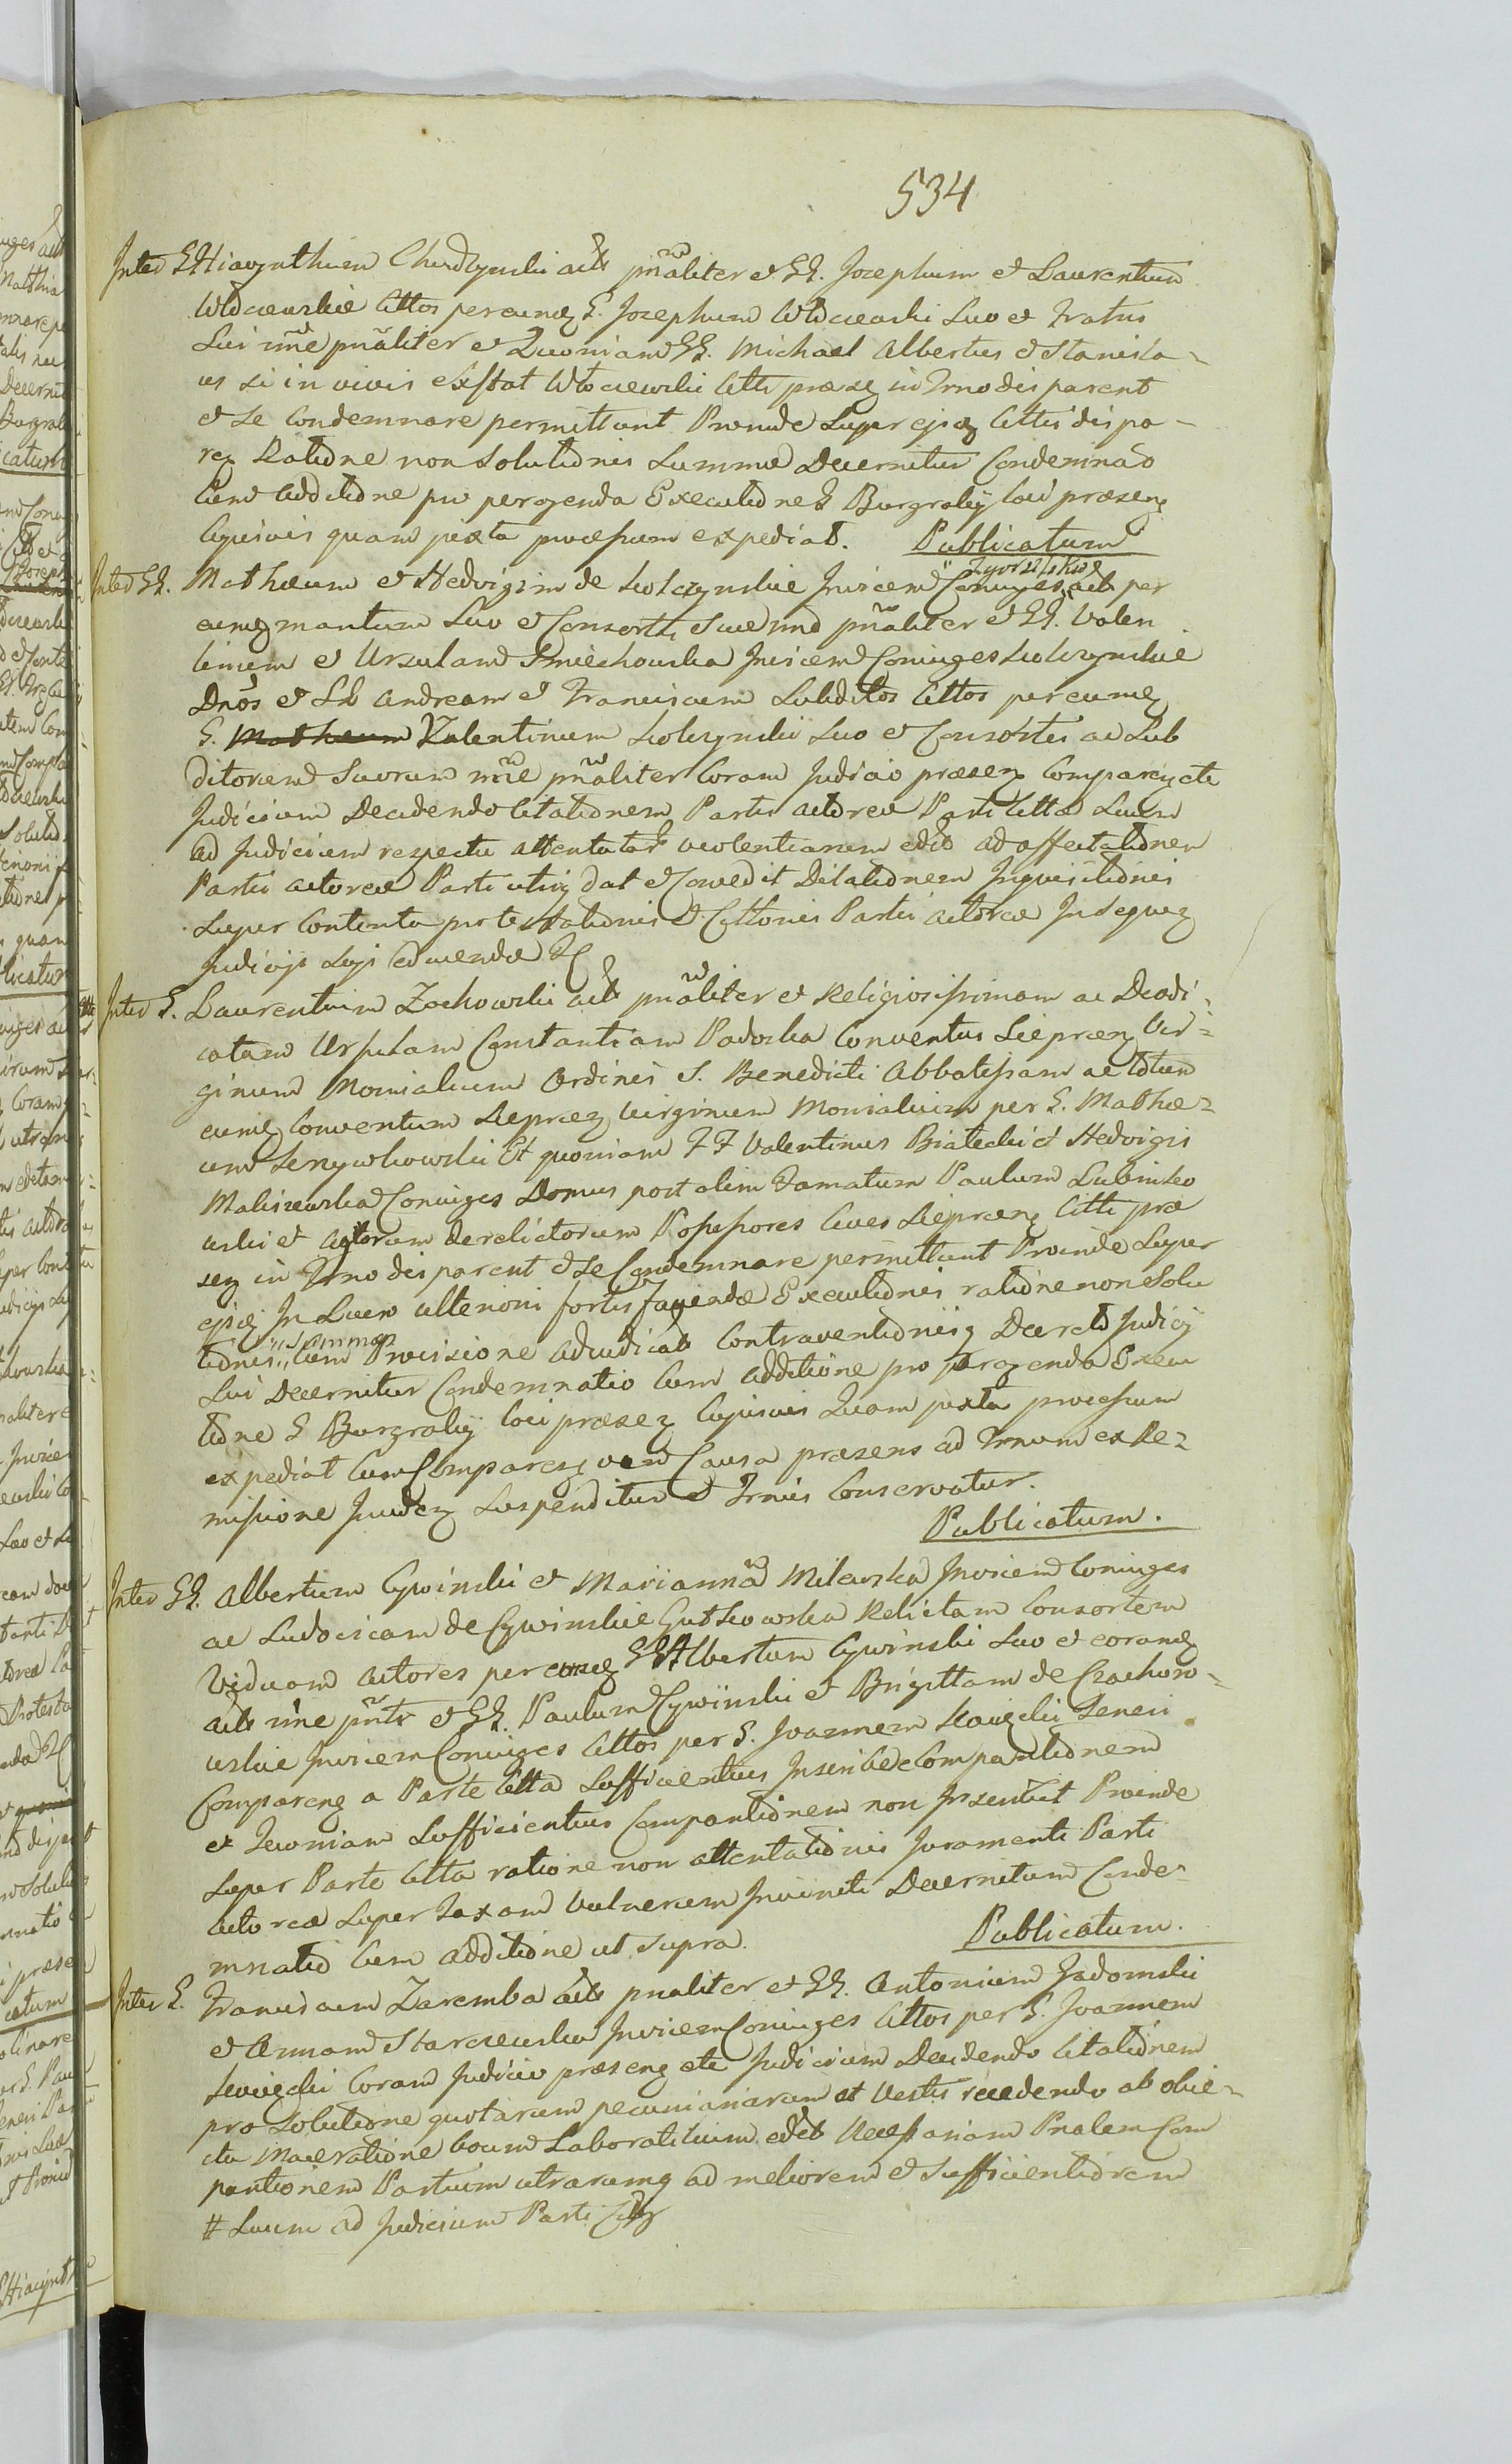 534
Inter G. Hiacynthum Chudzynski actr pñaliter et GG. Josephum et Laurentium
Włoczewskie Cittos per eumq G. Josephum Włoczewski Suo et Fratris
Sui nñe pñaliter et Quoniam GG. Michael Albertus et Stanisla-
us si in vivis exstat Włoczewski Citti praesq in Trno disparent
et se Condemnare permittunt Proinde Super ejsq Cittis dispa-
req Ratione non Solutionis Summae Decernitur Condemnao
Cum Additione pro peragenda Executione G Burgrabij loci praeseng
Cujusvis quam juxta processum expediat. Publicatum
Inter GG. Mathaeum et Hedvigim de Kolczynskie Invicem Coniuges actr per
eumq maritum Suo et Consortis Suae nno pñaliter et GG. Valen
tinum et Ursulam Smiechowska Invicem Coniuges Kolczynskie
Dnos et LL Andream et Franciscum Subditos Cittos per eumq
G. Mathaeum Valentinum Kolczynski Suo et Consortis ac Sub
ditorum Suorum nñe pñaliter Coram Judicio praeseng Comparcy etc
Judicium Decidendo Citationem Partis actorea Parti Citta Suum
ad Judicium respectu attentatar violentiarum edit ad affectationem
Partis actorea Parti utriq dat et Concedit Dilationem Inquisitionis
Super Contenta protestationis et Cittonis Partis actorea In Sequeq
Judicijs Suji educendae
Inter G. Laurentium Zochowski actr pñaliter et Religiosissimam ac Deodi-
catam Ursulam Constantiam Padoska Conventus Siepreng Vir-
ginum Monialium Ordinis S. Benedicti Abbatissam ac totum
eumq Conventum Siepreng Virginum Monialium per G. Mathae-
um Senywkowski Et quoniam FF Valentinus Białecki et Hedvigis
Maliszewska Coniuges Domus post olim Famatum Paulum Lubinko
wski et Actorum derelictorum Possessores Cives Siepreng Citti prae
seq in Trno disparent et Se Condemnare permittunt Proinde Super
ejsq In Lucro ultenoni fortis Faciendae Executionis ratione non Solu
tionis Summae Cum Provisione adiudicat Contraventionisq Decreto Judicij
Sui Decernitur Condemnatio Cum additione pro peragenda Execu
tione G Burgrabij loci praeseq Cujusvis Quam juxta processum
expediat Cum Comparesq vero Causa praesens ad Trnum ex Re-
missione Juideq Suspenditur et Trnus Conservatur.
Publicatum.
Inter GG. Albertum Cywinski et Mariannã Milewska Invicem Coniuges
ac Ludovicam de Cywinskie Gutkowska Relictam Consortem
Viduam Actores per eumq G Albertum Cywinski Suo et eorumq
actr nñe pñtr et GG. Paulum Cywinski et Brigittam de Czachoro-
wskie Invicem Coniuges Cittos per G. Joannem Kawecki Generi
Compareng a Parte Citta Sufficientius Inscribere Comparitionem
et Quoniam Sufficientius Comparitionem non Inscribit Proinde
Super Parte Citta ratione non attentationis Juramenti Parti
Actorea Super Taxam Vulnerum Iniuncti Decernitur Conde-
mnatio Cum additione ut Supra. Publicatum.
Inter G. Franciscum Zaremba actr pnaliter et GG. Antonium Jadomski
et Annam Starczewska Invicem Coniuges Cittos per G. Joannem
Kawecki Coram Judicio praeseng etc Judicium Decidendo Citationem
pro Solutione quotarum pecuniariarum et Vestis recedendo ab obie-
ctu Maceratione boum Laboratilium edit Necessariam Pnalem Com
paritionem Partium utrarumq ad meliorem et Sufficientiorem
# Suum ad Judicium Parti